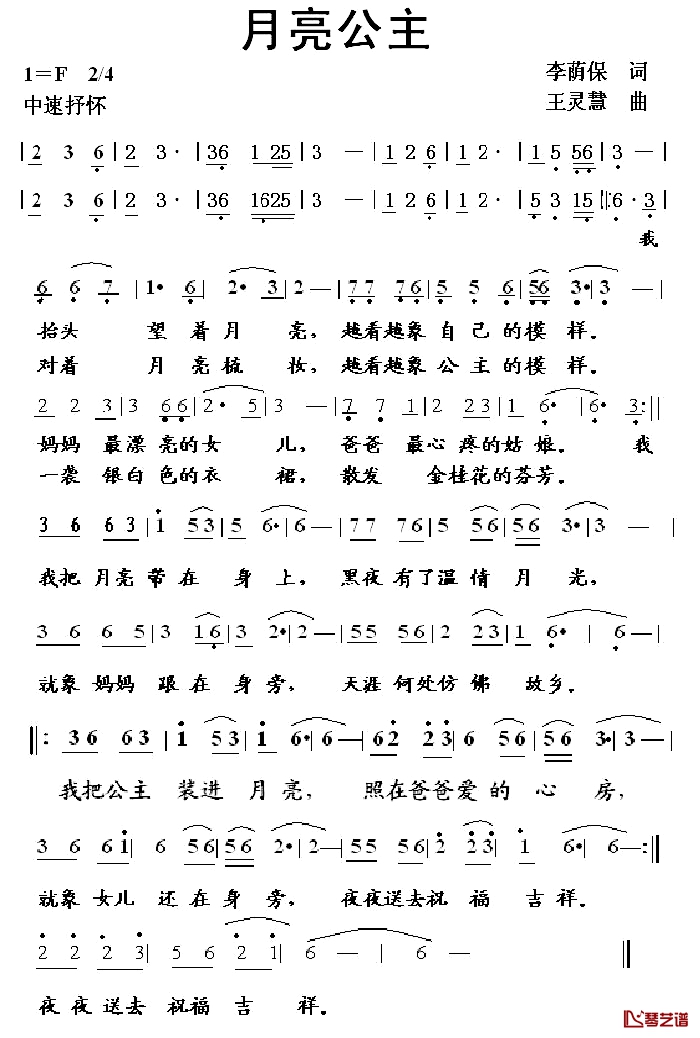 月亮公主
1=F 2/4 李荫保 词
中速抒怀 王灵慧 曲
| 2 3 6 | 2 3· | 36 1 25 | 3 — | 1 2 6 | 1 2· | 1 5 56 | 3 — |
| 2 3 6 | 2 3· | 36 1625 | 3 — | 1 2 6 | 1 2· | 5 3 15 |: 6· 3 |
我
6 6 7 | 1· 6 | 2· 3 | 2 — | 77 76 | 5 5 6 | 56 3· | 3 — |
抬头 望着月 亮, 越看越象自己的模样。
对着 月亮梳 妆, 越看越象公主的模样。
2 2 3 | 3 66 | 2· 5 | 3 — | 7 7 1 | 2 23 | 1 6· | 6· 3 :||
妈妈 最漂亮的女 儿, 爸爸 最心疼的姑娘。 我
一袭 银白色的衣 裙, 散发 金桂花的芬芳。
3 6 63 | 1 53 | 5 6· | 6 — | 77 76 | 5 56 | 56 3· | 3 — |
我把月亮带在身上, 黑夜有了温情月光,
3 6 6 5 | 3 16 | 3 2· | 2 — | 55 56 | 2 23 | 1 6· | 6 — |
就象妈妈 跟在身旁, 天涯何处仿佛 故乡。
||: 36 63 | 1 53 | 1 6· | 6 — | 62 23 | 6 56 | 56 3· | 3 — |
我把公主 装进 月亮, 照在爸爸爱的 心 房,
3 6 61 | 6 56 | 56 2· | 2 — | 55 56 | 2 23 | 1 6· | 6 — :||
就象女儿 还在身 旁, 夜夜送去祝 福 吉祥。
2 2 2 3 | 5 6 2 1 | 6 — | 6 — ||
夜夜送去 祝福吉 祥。
琴艺谱